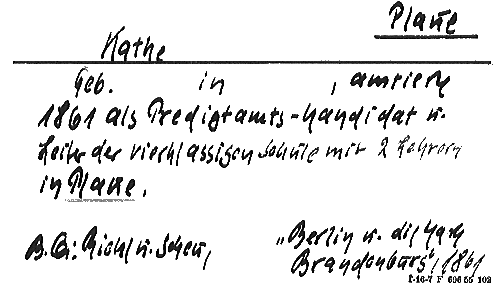 Plaue
Kathe
Geb. in , amtiert
1861 als Predigtamts-Kandidat u.
Leiter der vierklassigen Schule mit 2 Lehrern
in Plaue.
B.Qu: Riehl u. Scheu, "Berlin u. die Mark
Brandenburg", 1861
I-16-7 F 696 55 102